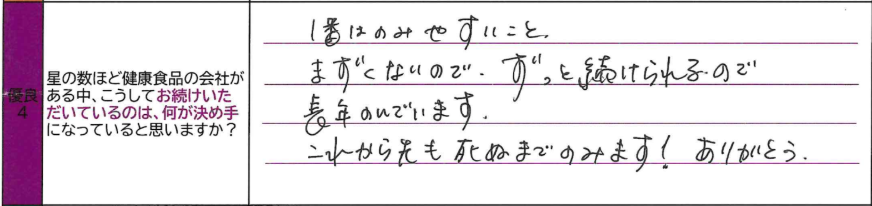 優良
4
星の数ほど健康食品の会社が
ある中、こうしてお続けいた
だいているのは、何が決め手
になっていると思いますか？
1番はのみやすいこと.
まずくないので. ずっと続けられるので
長年のんでいます.
これから先も死ぬまでのみます! ありがとう.